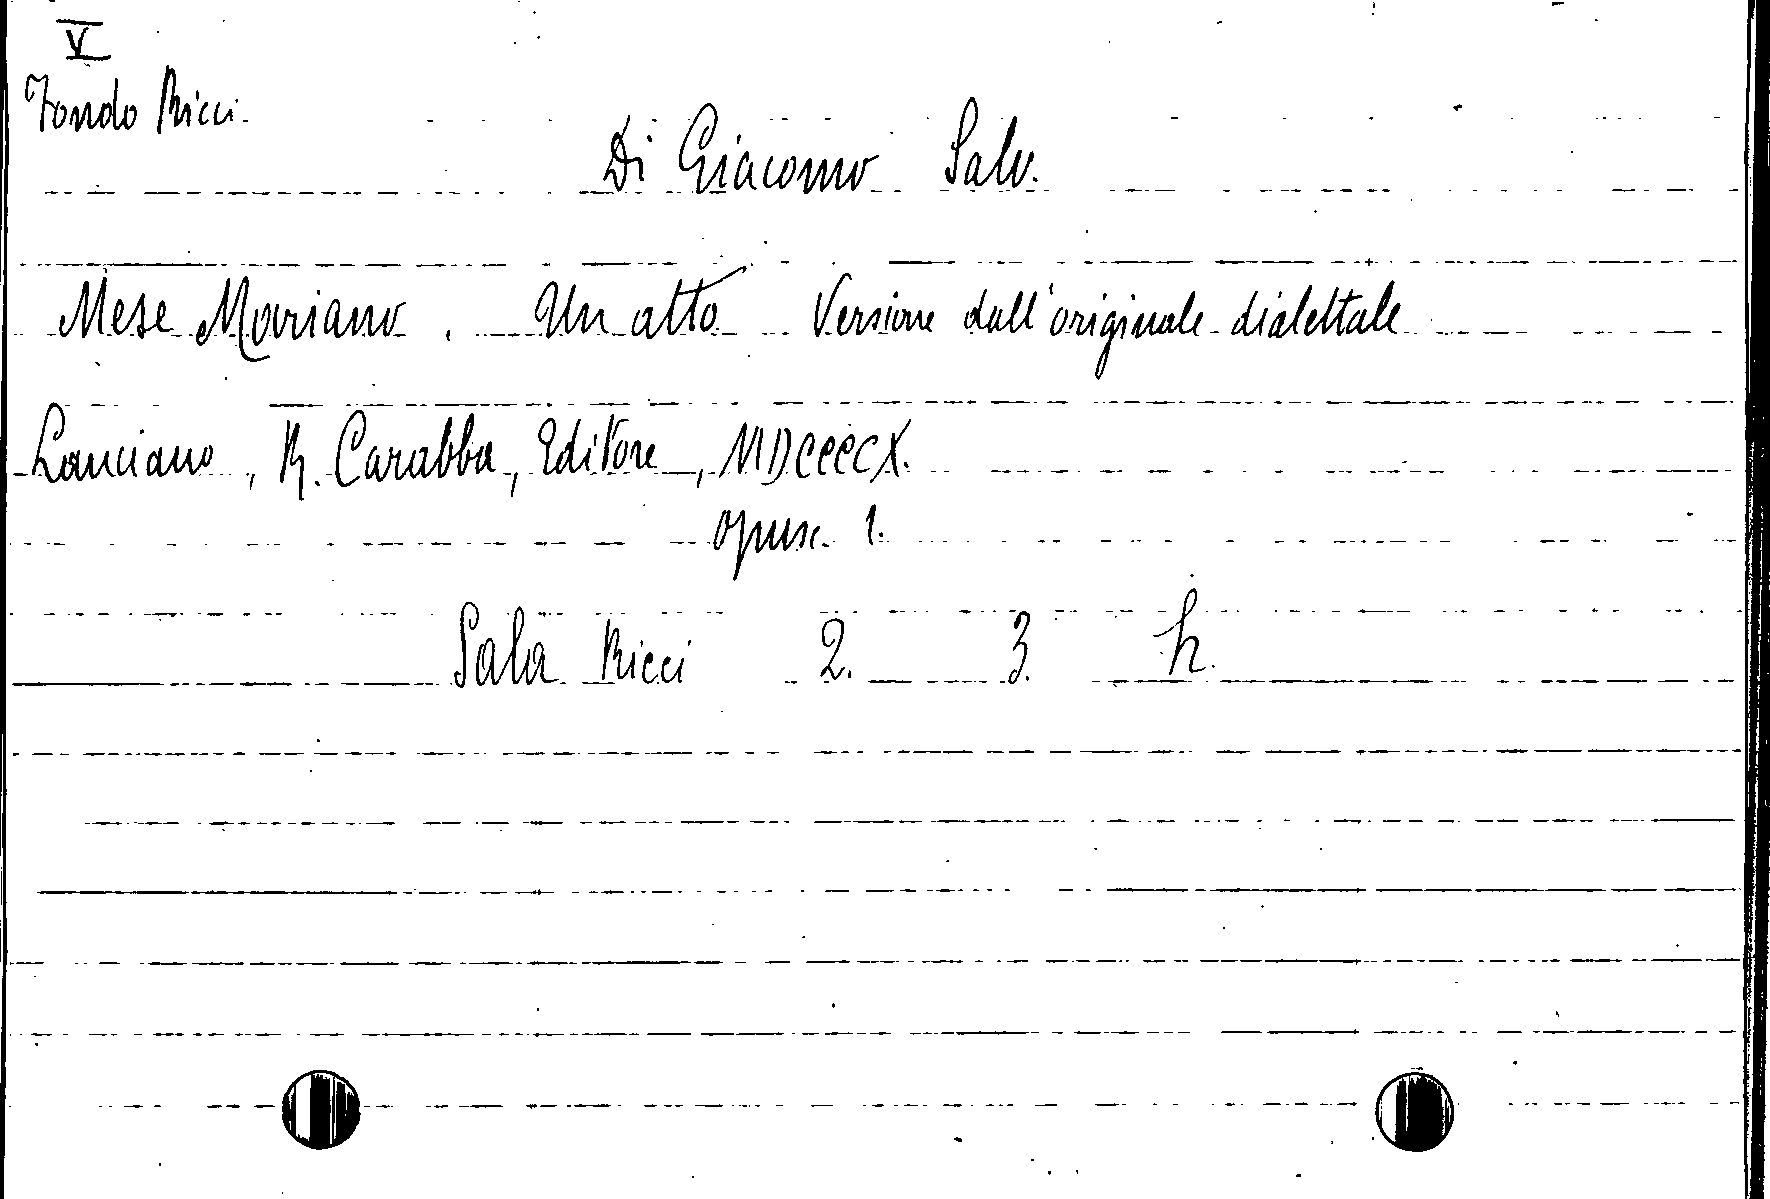 V
Fondo Ricci.
Di Giacomo Salv.
Mese Mariano. Un atto Versione dall'originale dialettale
Lanciano, R. Carabba, Editore, MDCCCCX.
opusc. 1.
Sala Ricci 2. 3. h.